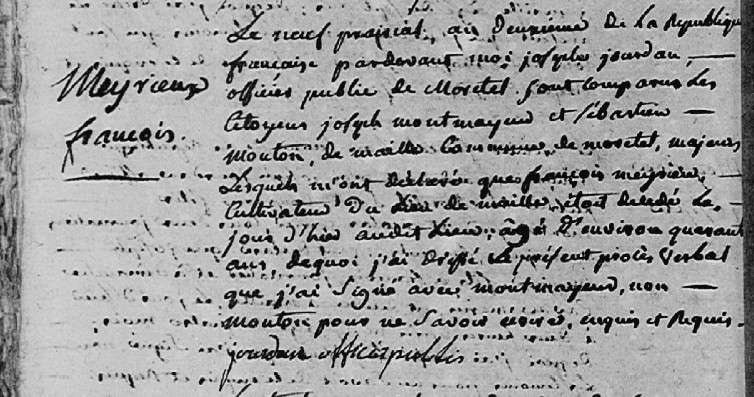 Meyrieux
françois.
Le neuf prairial, an Deuxieme de La Republique
française pardevant moi joseph jourdan,
officier public de Moretel sont comparus Les
Citoyens joseph montmayeur et sébastien
mouton, de maille Commune de moretel, majeurs
Lesquels m'ont déclaré que françois meyrieux,
Cultivateur Du Lieu de maille, étoit décédé Le
jour d'hier audit Lieu, âgé D'environ quarante
ans dequoi j'ai dressé Le présent procès verbal
que j'ai Signé avec montmayeur, non
mouton pour ne Savoir écrire, enquis et Requis.
jourdan officier public